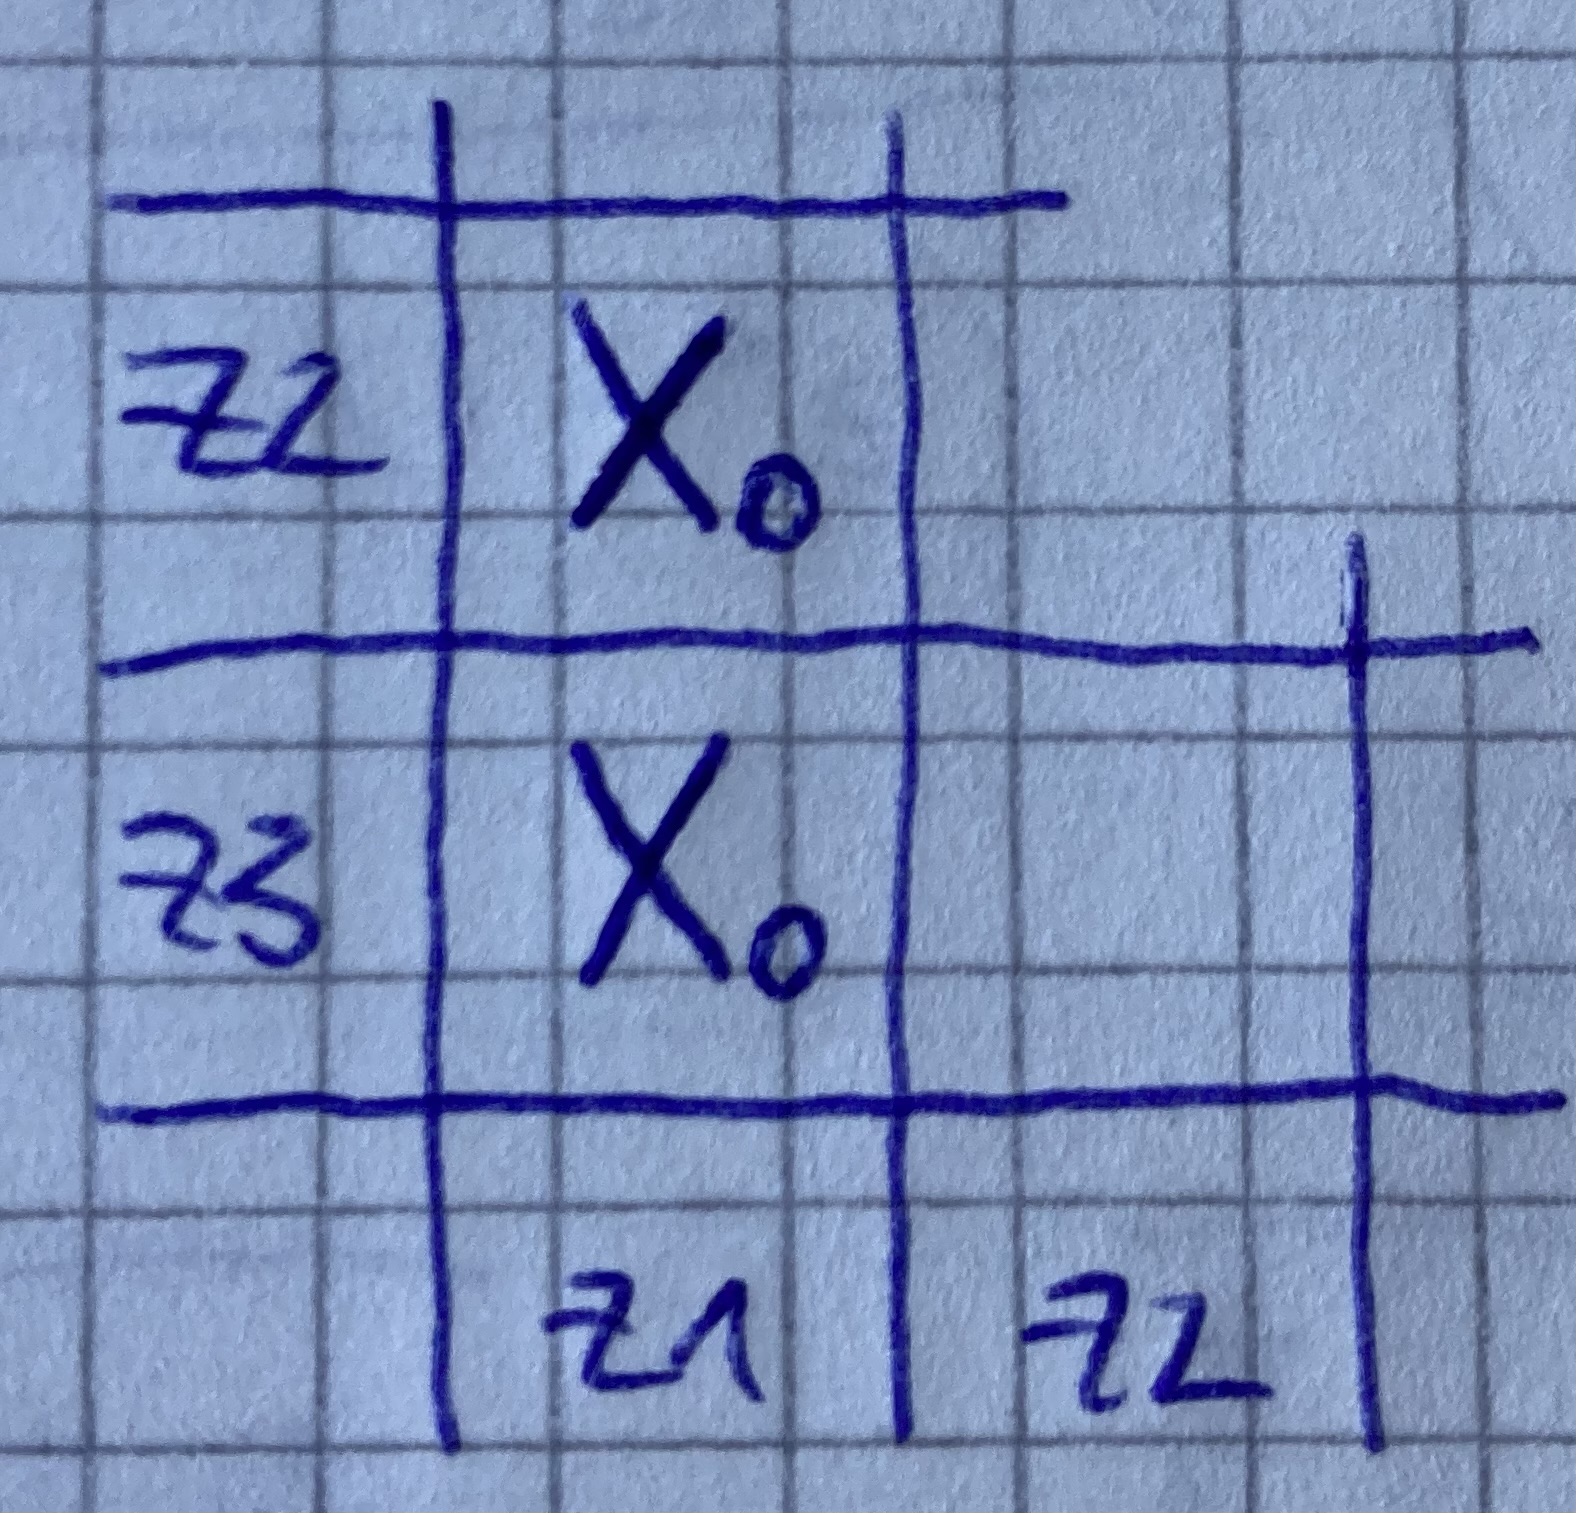 z2 X₀
z3 X₀
z1 z2